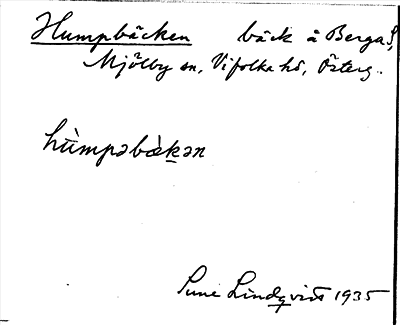 Humpbäcken bäck å Berga S,
Mjölby sn, Vifolka hd, Österg.
hùmpəbæ̀kən
Sune Lindqvist 1935